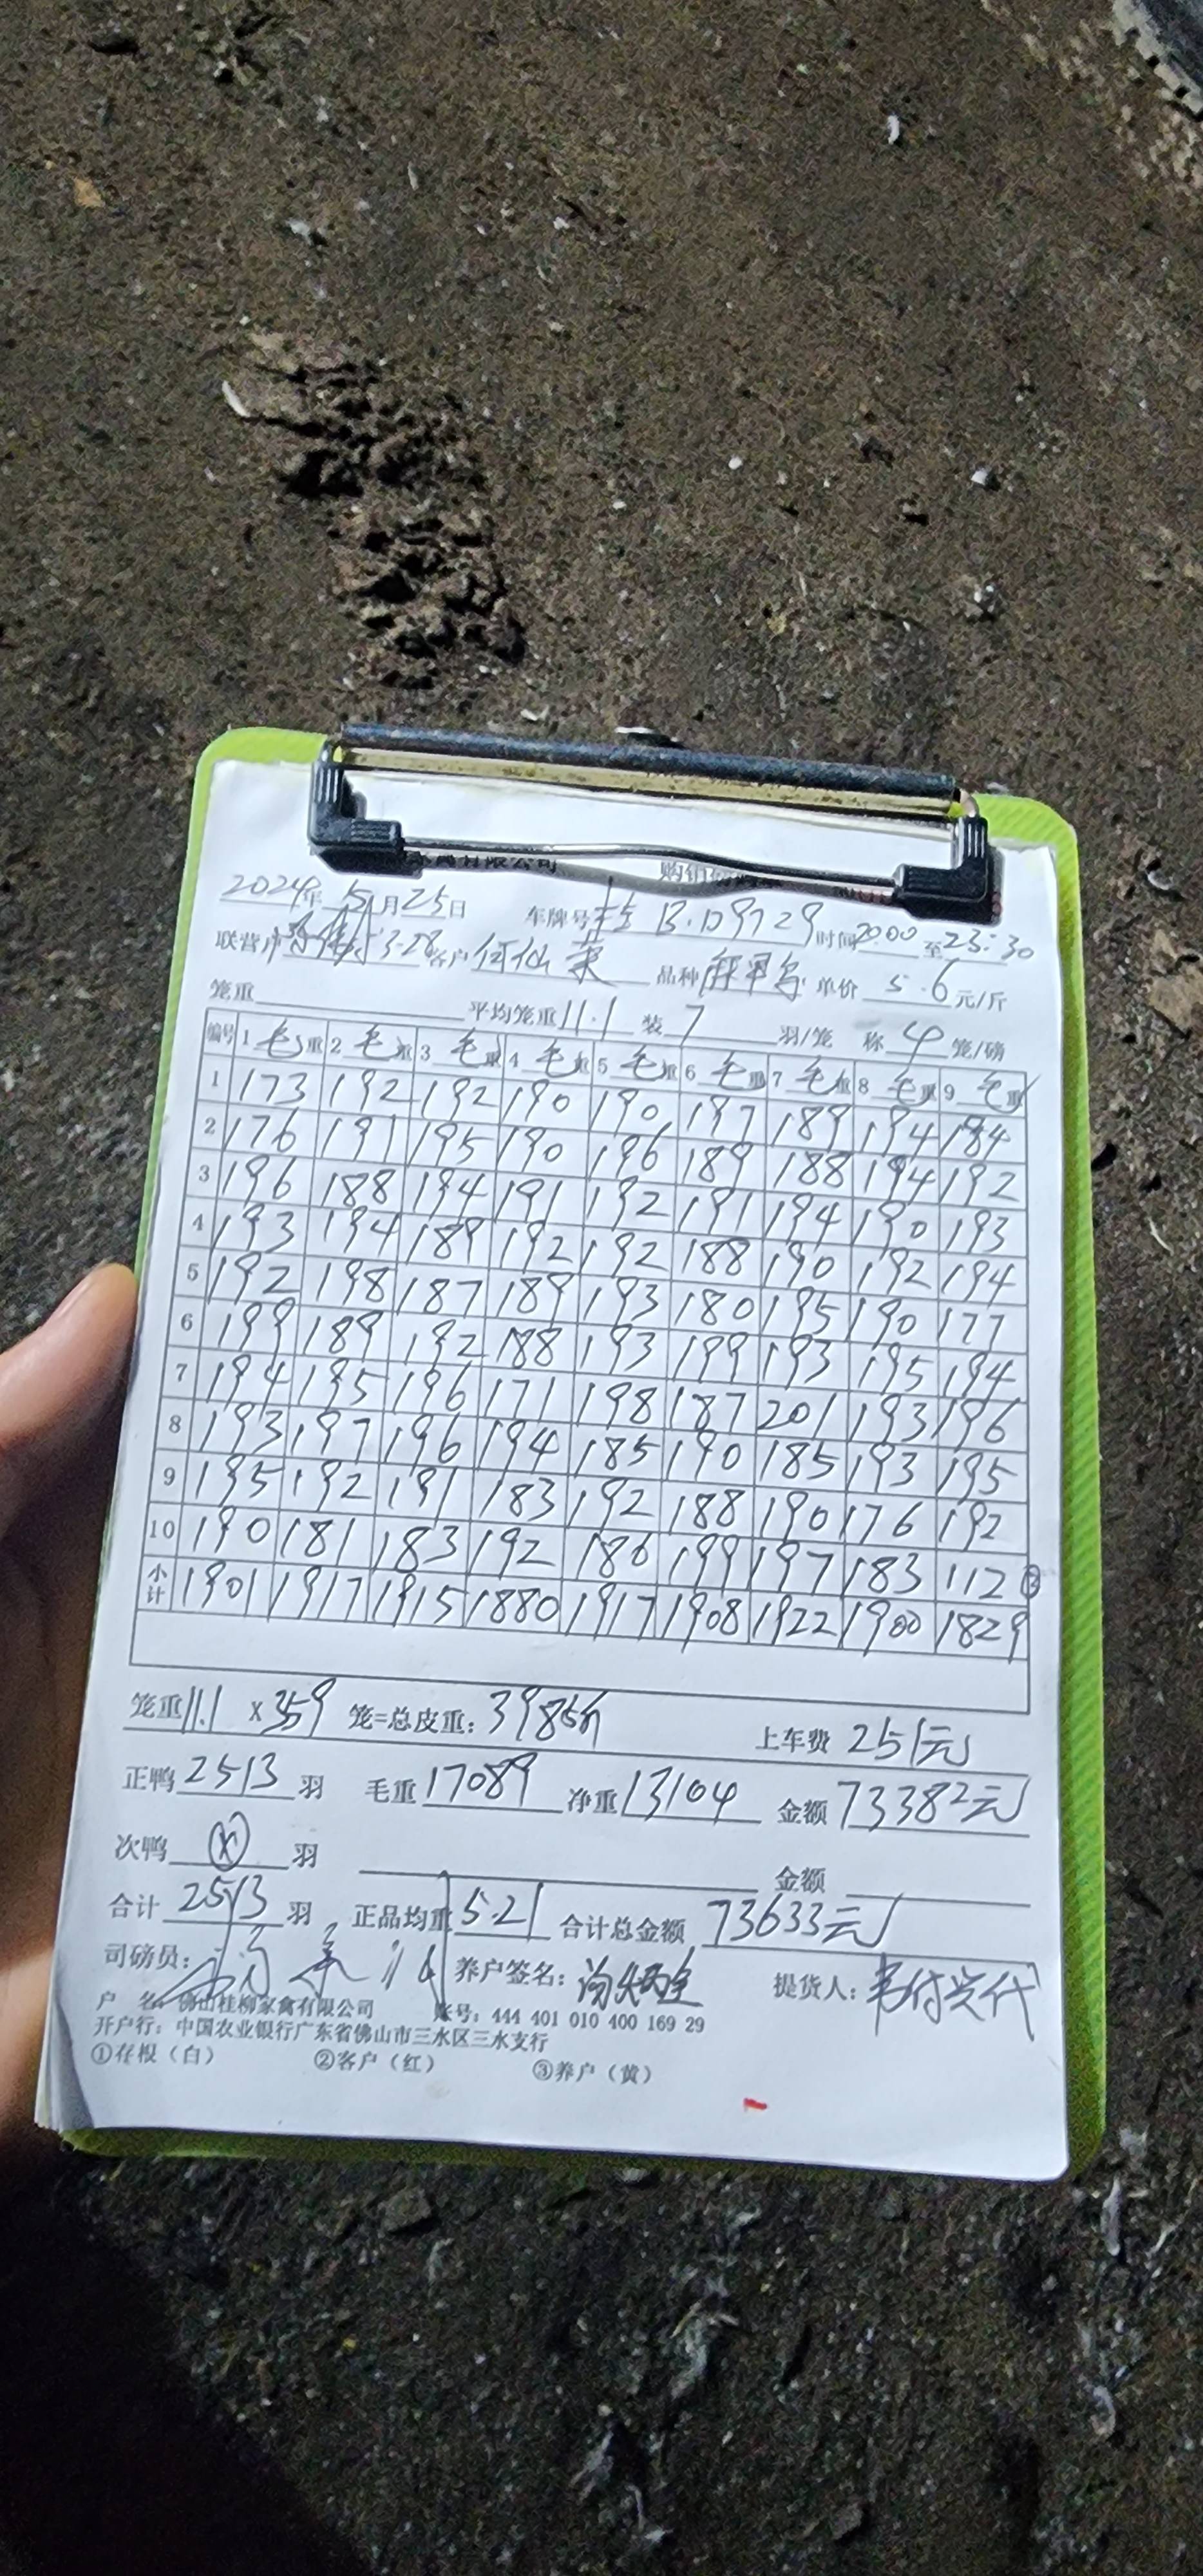 禽有限公司 购销
2024年 5月25日 车牌号 桂B·D9729 时间20:00至23:30
联营户 3-28 客户 何仙 品种 单价 5.6 元/斤
笼重 平均笼重 11.1 装 7 羽/笼 称 4 笼/磅
编号 1 毛重 2 毛重 3 毛重 4 毛重 5 毛重 6 毛重 7 毛重 8 毛重 9 毛重
1 173 192 192 190 190 197 189 194 184
2 176 191 195 190 196 189 188 194 192
3 196 188 194 191 192 191 194 190 193
4 193 194 189 192 192 188 190 192 194
5 192 198 187 189 193 180 195 190 177
6 199 189 192 188 193 199 193 195 194
7 194 195 196 171 198 187 201 193 196
8 193 197 196 194 185 190 185 193 195
9 195 192 191 183 192 188 190 176 192
10 190 181 183 192 186 199 197 183 112 ③
小计 1901 1917 1915 1880 1917 1908 1922 1900 1829
笼重 11.1 x 359 笼=总皮重: 3985斤 上车费 251元
正鸭 2513 羽 毛重 17089 净重 13104 金额 73382元
次鸭 ⓧ 羽 金额
合计 2513 羽 正品均重 5.21 合计总金额 73633元
司磅员: 养户签名: 提货人:
户 名: 佛山桂柳家禽有限公司 账号: 444 401 010 400 169 29
开户行: 中国农业银行广东省佛山市三水区三水支行
①存根(白) ②客户(红) ③养户(黄)